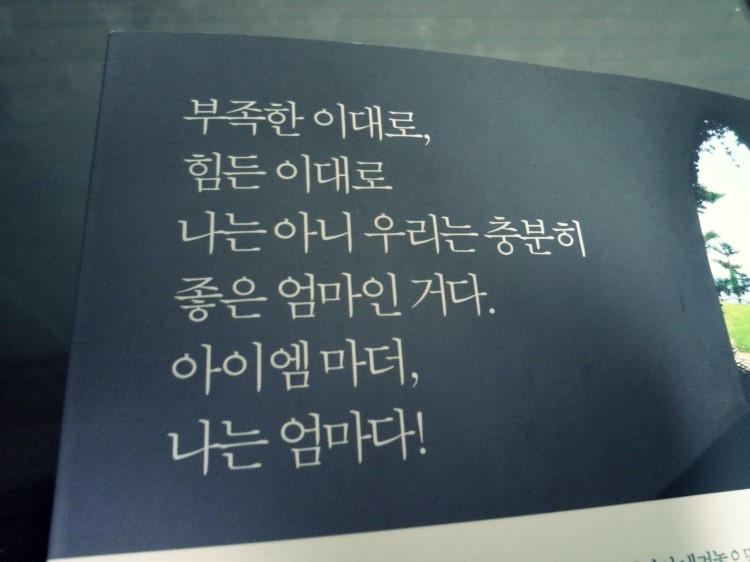 부족한 이대로,
힘든 이대로
나는 아니 우리는 충분히
좋은 엄마인 거다.
아이엠 마더,
나는 엄마다!